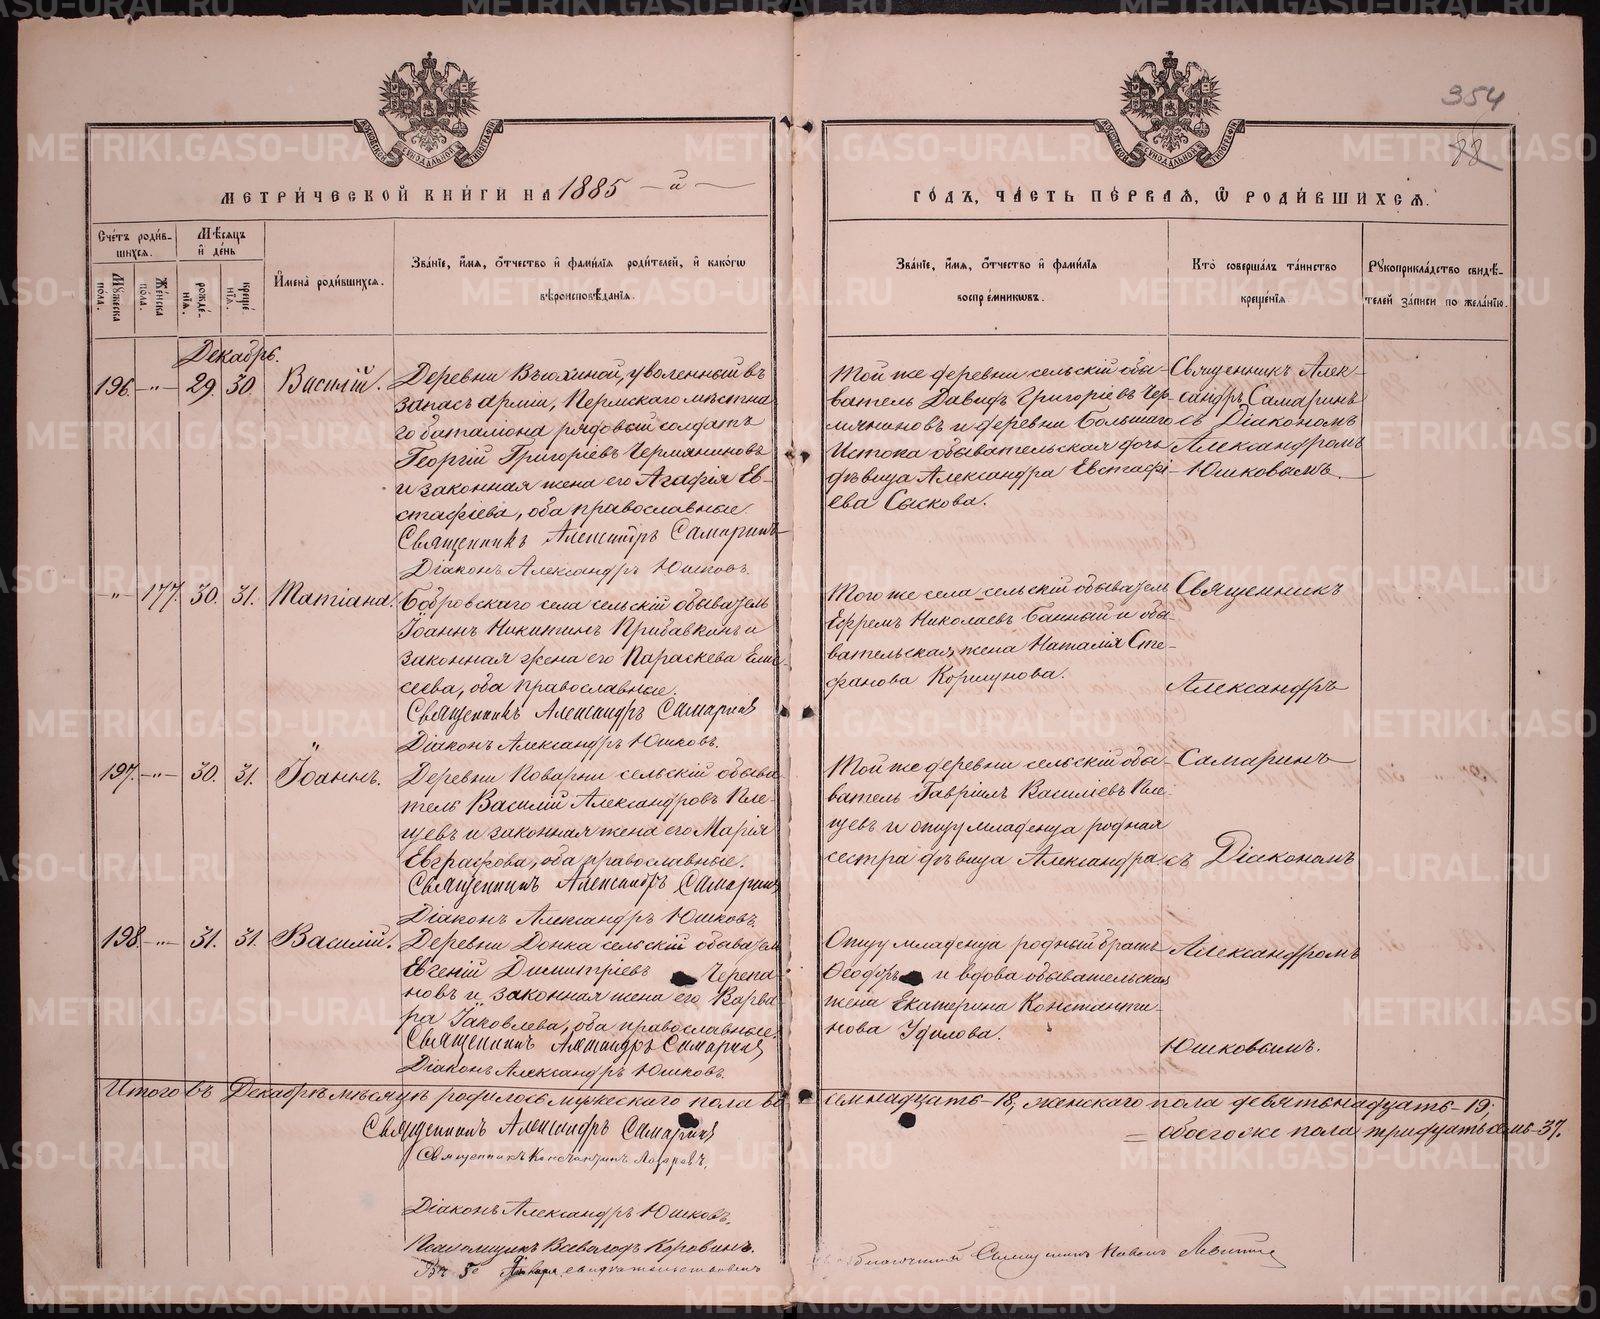 354
88
МЕТРИЧЕСКОЙ КНИГИ НА 1885 -й-
ГОДЪ, ЧАСТЬ ПЕРВАЯ, Ѡ РОДИВШИХСЯ.
Счетъ родив-
шихся.
Мѣсяцъ
и день
Мужеска
пола.
Женска
пола.
рожде-
нія.
креще-
нія.
Имена родившихся.
Званіе, имя, отчество и фамилія родителей, и какогѡ
вѣроисповѣданія.
Званіе, имя, отчество и фамилія
воспріемникѡвъ.
Кто совершалъ таинство
крещенія.
Рукоприкладство свидѣ-
телей записи по желанію.
Декабрь.
196. — " — 29. 30. Василій.
Деревни Вьюхиной, уволенный въ
запасъ арміи, Пермскаго мѣстна-
го баталіона рядовый солдатъ
Георгій Григоріевъ Чермяниновъ
и законная жена его Агафія Ев-
стафіева, оба православные.
Священникъ Александръ Самаринъ
Діаконъ Александръ Юшковъ.
Той же деревни сельскій обы-
ватель Давидъ Григоріевъ Чер-
мяниновъ и деревни Большаго
Истока обывательская дочь
дѣвица Александра Евстафі-
ева Сыскова.
Священникъ Алек-
сандръ Самаринъ
съ Діакономъ
Александромъ
Юшковымъ.
" 177. 30. 31. Татіана.
Бобровскаго села сельскій обыватель
Іоаннъ Никитинъ Прибавкинъ и
законная жена его Параскева Ели-
сеева, оба православные.
Священникъ Александръ Самаринъ
Діаконъ Александръ Юшковъ.
Того же села сельскій обыватель
Ефремъ Николаевъ Банный и обы-
вательская жена Наталія Сте-
фанова Коршунова.
Священникъ
Александръ
197. — " — 30. 31. Іоаннъ.
Деревни Поварни сельскій обыва-
тель Василій Александровъ Пле-
щевъ и законная жена его Марія
Евграфова, оба православные.
Священникъ Александръ Самаринъ
Діаконъ Александръ Юшковъ.
Той же деревни сельскій обы-
ватель Гавріилъ Василіевъ Пле-
щевъ и отцу младенца родная
сестра дѣвица Александра.
Самаринъ
съ Діакономъ
198. — " — 31. 31. Василій.
Деревни Донка сельскій обыватель
Евгеній Димитріевъ Черепа-
новъ и законная жена его Варва-
ра Іаковлева, оба православные.
Священникъ Александръ Самаринъ
Діаконъ Александръ Юшковъ.
Отцу младенца родный братъ
Ѳеодоръ и вдова обывательская
жена Екатерина Константи-
нова Удилова.
Александромъ
Юшковымъ.
Итого въ Декабрѣ мѣсяцѣ родилось мужескаго пола во
семнадцать-18, женскаго пола девятьнадцать-19;
= обоего же пола тридцать семь-37.
Священникъ Александръ Самаринъ
Священникъ Константинъ Лазаревъ.
Діаконъ Александръ Юшковъ.
Псаломщикъ Всеволодъ Коровинъ.
Января свидѣтельствовалъ
Благочинный Священникъ Павелъ
METRIKI.GASO-URAL.RU